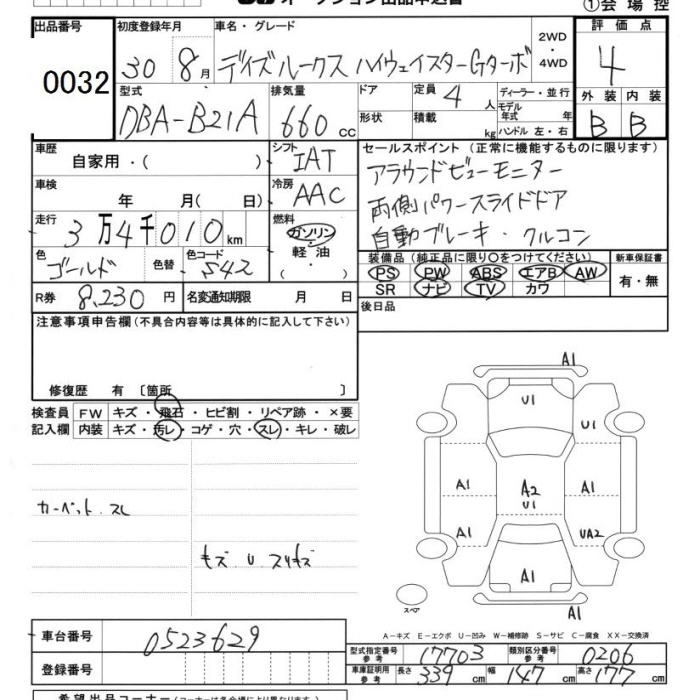 オークション出品申込書
①会場控
出品番号
0032
初度登録年月
30 8月
車名・グレード
デイズルークス ハイウェイスターGターボ
2WD
・
4WD
評価点
4
外装 内装
B B
型式
DBA-B21A
排気量
660 cc
ドア
形状
定員 4 人
積載 kg
ディーラー・並行
モデル年式 年
ハンドル 左・右
車歴
自家用・( )
シフト
IAT
車検
年 月( 日)
冷房
AAC
走行
3万4千010km
燃料
ガソリン
・
軽油
・
( )
色
ゴールド
色替
色コード
S42
R券 8,230円
名変通知期限 月 日
セールスポイント (正常に機能するものに限ります)
アラウンドビューモニター
両側パワースライドドア
自動ブレーキ・クルコン
装備品(純正品に限り○をつけてください)
PS PW ABS エアB AW
SR ナビ TV カワ
新車保証書
有・無
後日品
注意事項申告欄(不具合内容等は具体的に記入して下さい)
修復歴 有 〔箇所 〕
検査員
記入欄
FW キズ・飛石・ヒビ割・リペア跡・×要
内装 キズ・汚レ・コゲ・穴・スレ・キレ・破レ
カーペット.スレ
キズ.U.スリキズ
A1
U1
A1 U1
A2
U1
A1 UA2
A1
A1
スペア
A-キズ E-エクボ U-凹み W-補修跡 S-サビ C-腐食 XX-交換済
車台番号 0523629
登録番号
型式指定番号
参考
17703
類別区分番号
参考
0206
車庫証明用
参考
長さ 339 cm 幅 147 cm 高さ 177 cm
希望出品コーナー